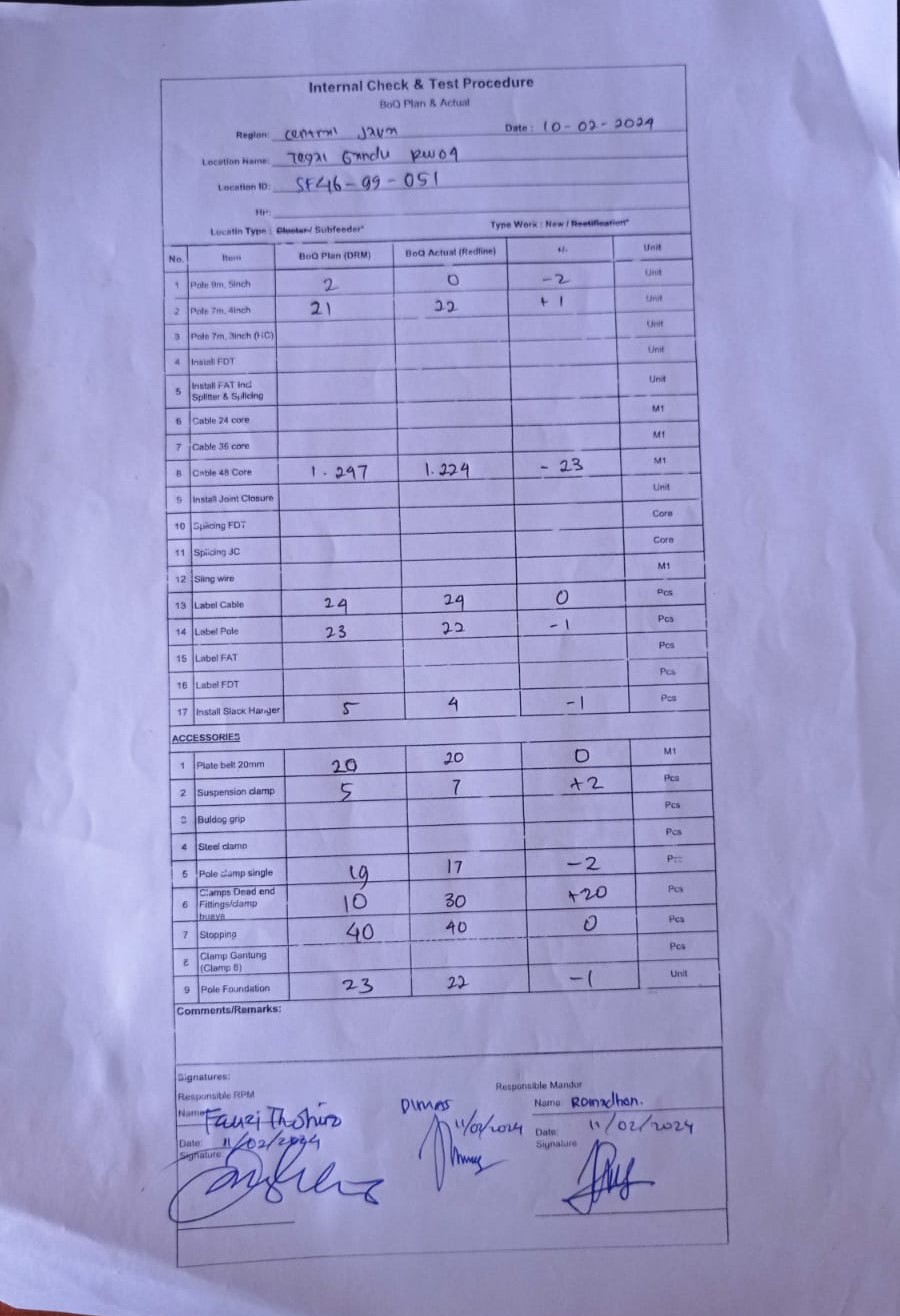 Internal Check & Test Procedure
BoQ Plan & Actual
Region: Central Java Date: 10-02-2024
Location Name: Tegal Gandu RW09
Location ID: SF46-99-051
HP:
Locatin Type : Cluster/ Subfeeder* Type Work : New / Rectification*
No. Item BoQ Plan (DRM) BoQ Actual (Redline) +/- Unit
1 Pole 9m, 5inch 2 0 -2 Unit
2 Pole 7m, 4inch 21 22 +1 Unit
3 Pole 7m, 3inch (HC) Unit
4 Install FDT Unit
5 Install FAT Incl Unit
Splitter & Splicing
6 Cable 24 core M1
7 Cable 36 core M1
8 Cable 48 Core 1.297 1.224 - 23 M1
9 Install Joint Closure Unit
10 Splicing FDT Core
11 Splicing JC Core
12 Sling wire M1
13 Label Cable 24 24 0 Pcs
14 Label Pole 23 22 -1 Pcs
15 Label FAT Pcs
16 Label FDT Pcs
17 Install Slack Hanger 5 4 -1 Pcs
ACCESSORIES
1 Plate belt 20mm 20 20 0 M1
2 Suspension clamp 5 7 +2 Pcs
3 Buldog grip Pcs
4 Steel clamp Pcs
5 Pole clamp single 19 17 -2 Pcs
6 Clamps Dead end 10 30 +20 Pcs
Fittings/clamp
buaya
7 Stopping 40 40 0 Pcs
8 Clamp Gantung Pcs
(Clamp 6)
9 Pole Foundation 23 22 -1 Unit
Comments/Remarks:
Signatures:
Responsible RPM Responsible Mandor
Name Fauzi DIMAS Name Romadhon.
Date: 11/02/2024 11/02/2024 Date: 11/02/2024
Signature Signature